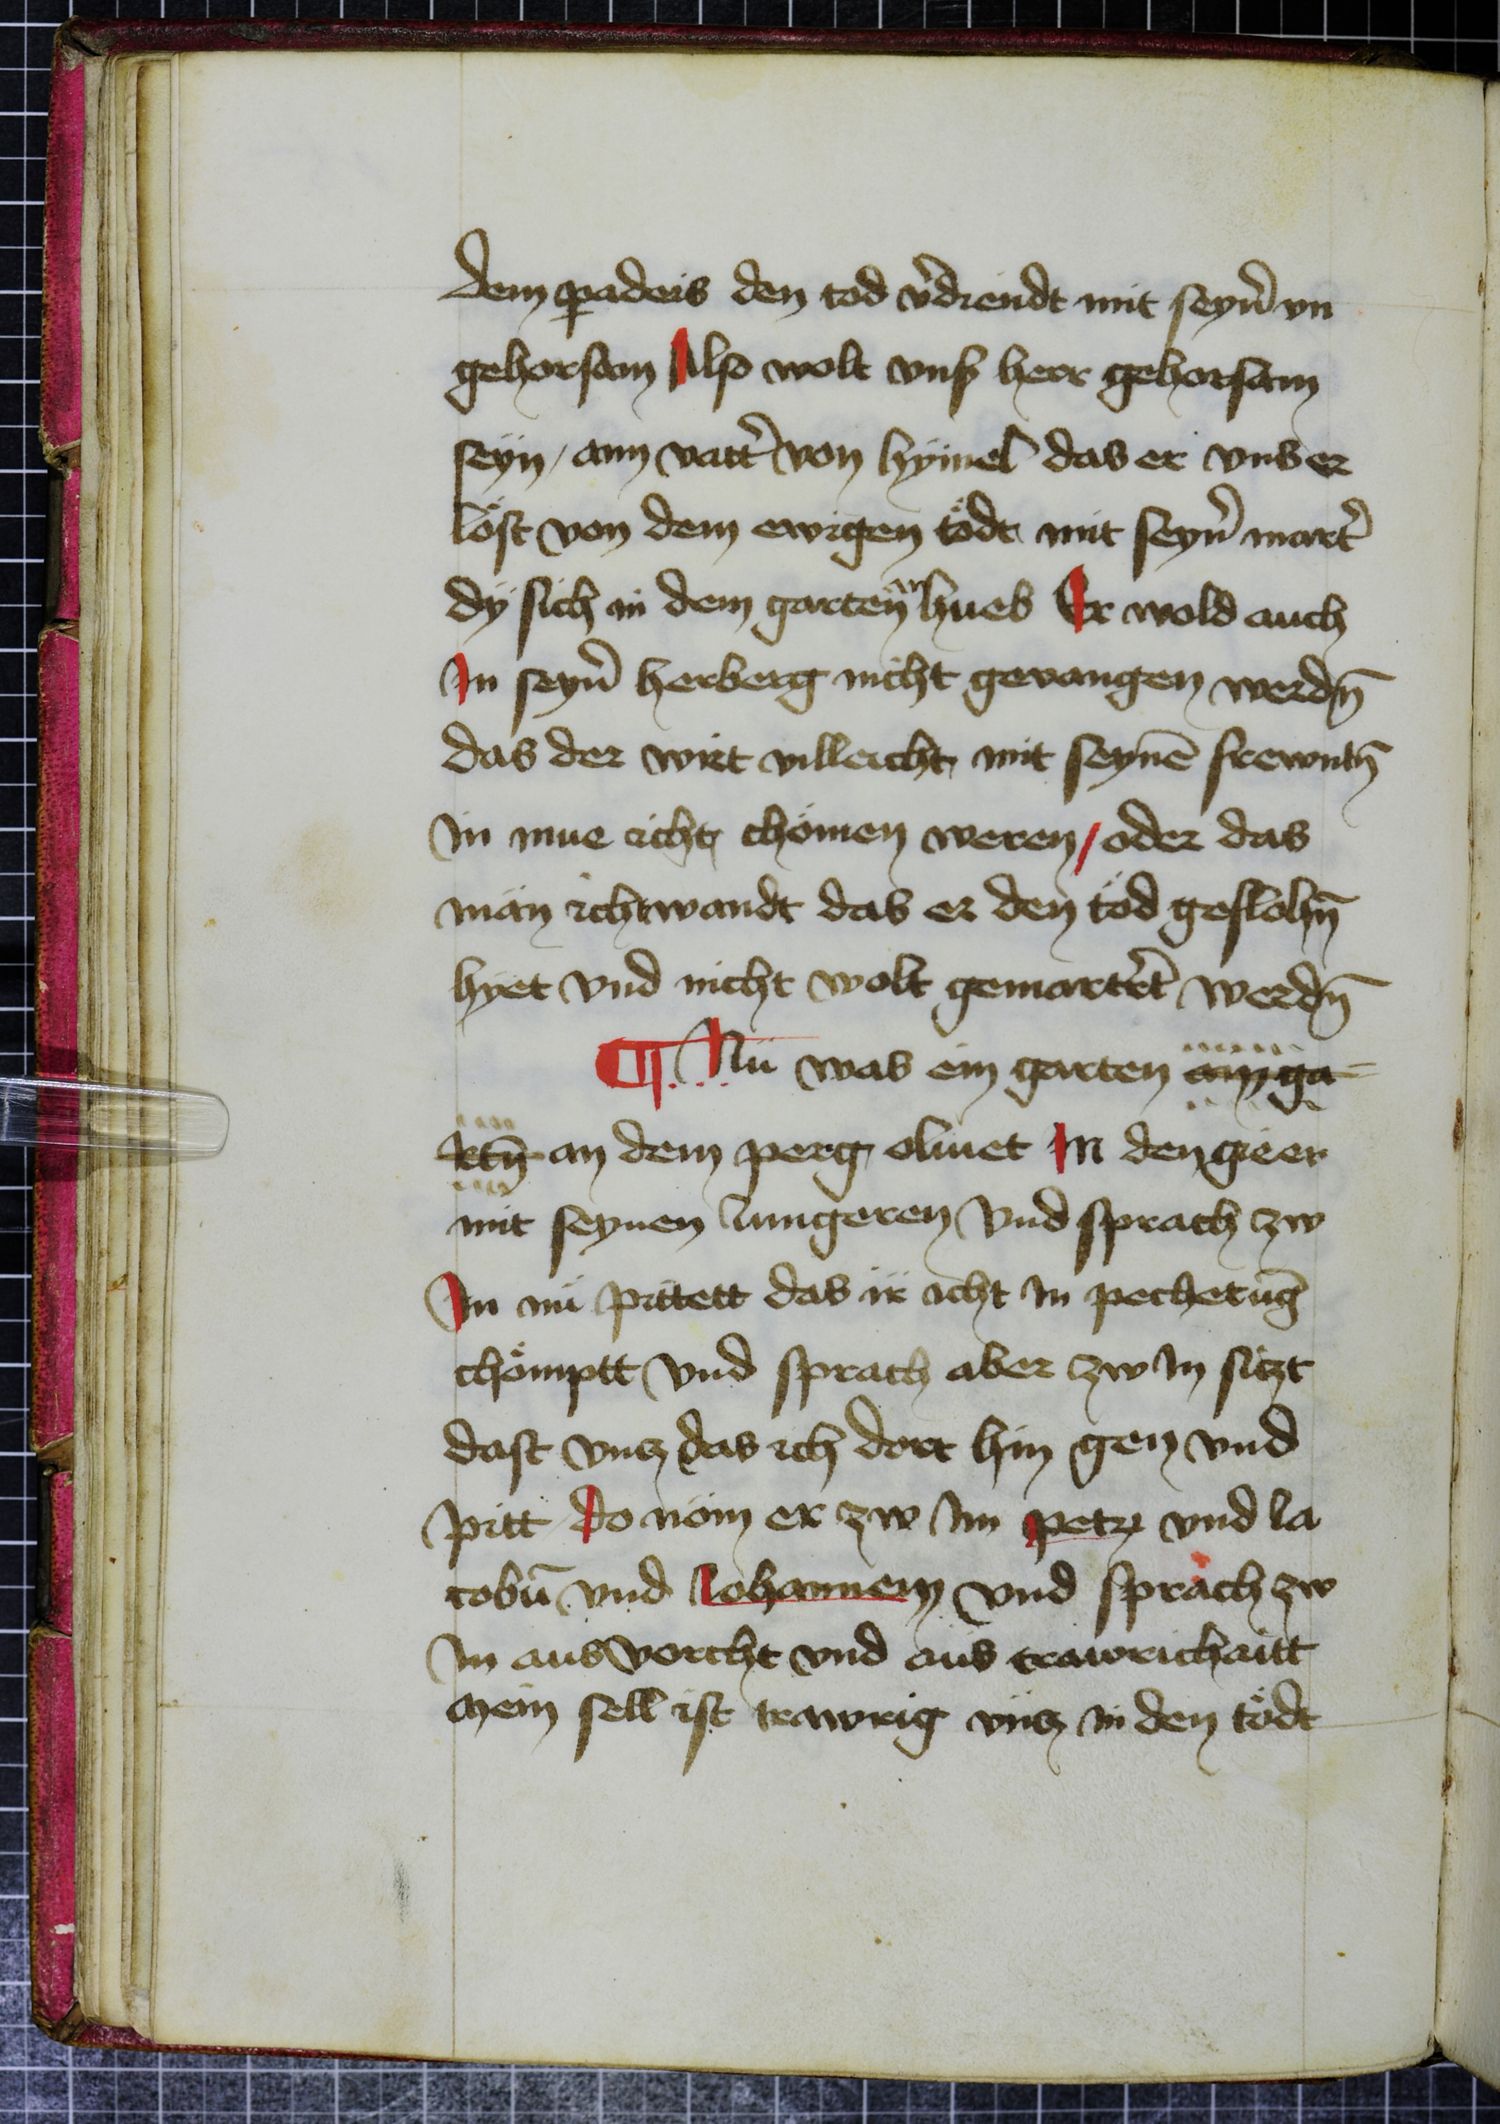 dem ꝑadeis den tod v̾diendt mit seyn̾ vn
gehorsam Also wolt vnß herr gehorsam
seÿn / ann vatt̾ von hÿmel das er vns er
löst von dem ewigen tödt mit seyn̾ mart̾
dÿ sich in dem garten an hueb Er wold auch
In seyn̾ herberg nicht gevangen werdn̄
das der wirt villeicht mit seynē frewntn̄
in mue icht chömen weren / oder das
män icht wandt das er den töd geflohn̄
hyet vnd nicht wolt gemartet̾t werdn̄
¶ Nü was ein garten am ga
rtn̄ an dem perg oliuet In den gie er
mit seynen Iungeren vnd sprach zw
In nü pittett das ir icht in pechetūg
chömptt vnd sprach aber zw In sitzt
dast vncz das ich dort hin gen vnd
pitt do nöm er zw Im petrꝫ vnd Ia
cobū vnd Iohannem vnd sprach zw
In aus vorcht vnd aüs trawrichaitt
Mein sell ist trawrig vncz in den tödt